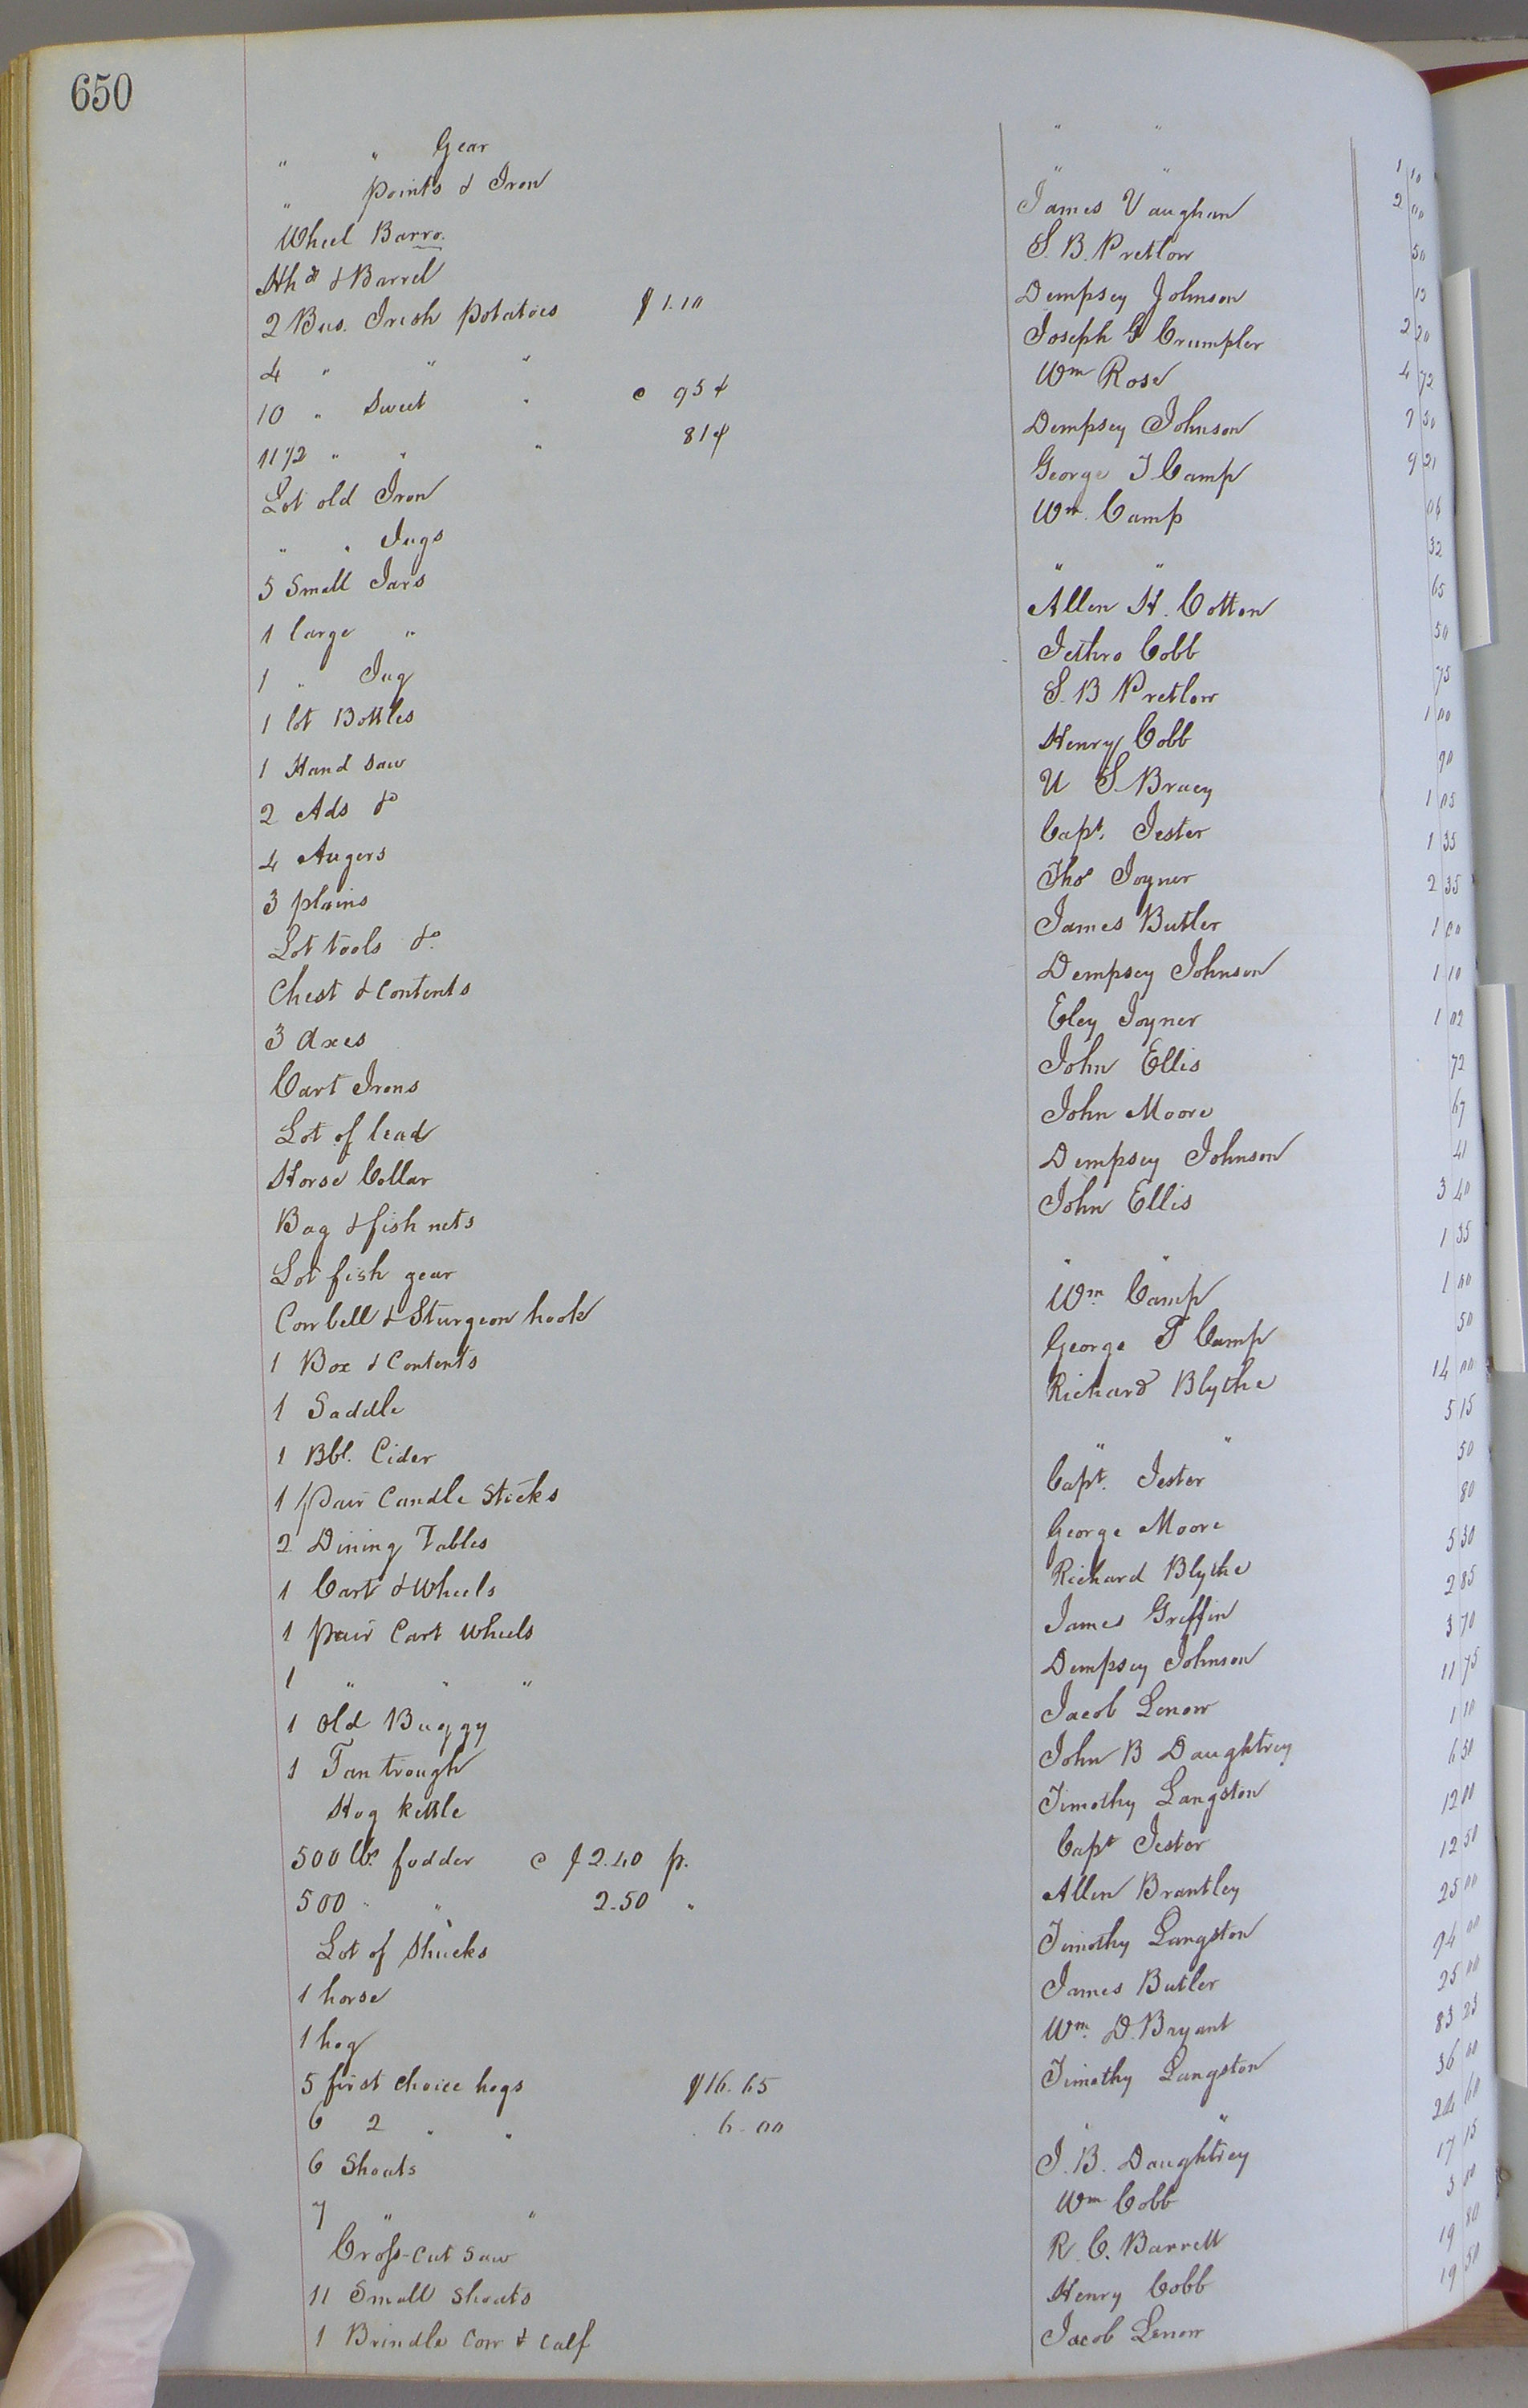 650
" " Gear " " 1 10
" points & Iron " " 2 00
Wheel Barro. James Vaughan 50
Hhd & Barrel S. B. Pretlow
2 Bus. Irish potatoes $1.10 Dempsey Johnson 2 20
4 " " " Joseph G Crumpler 4 72
10 " Sweet " @ 95¢ Wm Rose 9 50
11 1/2 " " " 81¢ Dempsey Johnson 9 21
Lot old Iron George T Camp 06
" " Jugs Wm. Camp 32
5 Small Jars " " 65
1 large " Allen H. Cotton 50
1 " Jug Jethro Cobb 75
1 lot Bottles S. B Pretlow 1 00
1 Hand saw Henry Cobb 90
2 Ads &c U S Bracy 1 05
4 Augers Capt. Jester 1 35
3 plains Thos Joyner 2 35
Lot tools &c. James Butler 1 00
Chest & contents Dempsey Johnson 1 10
3 Axes Eley Joyner 1 02
Cart Irons John Ellis 72
Lot of lead John Moore 67
Horse Collar Dempsey Johnson 41
Bag & fish nets John Ellis 3 40
Lot fish gear " " 1 35
Cow bell & Sturgeon hook Wm. Camp 1 00
1 Box & Contents George T Camp 50
1 Saddle Richard Blythe 14 00
1 Bbl. Cider " " 5 15
1 pair Candle Sticks Capt. Jester 50
2 Dining Tables George Moore 80
1 Cart & Wheels Richard Blythe 5 50
1 pair Cart Wheels James Griffin 2 85
1 " " " Dempsey Johnson 3 70
1 Old Buggy Jacob Lenow 11 75
1 Tan trough John B Daughtrey 1 10
Hog kettle Timothy Langston 6 50
500 lbs. fodder @ $2.40 p. Capt Jester 12 00
500 " " 2.50 " Allen Brantley 12 50
Lot of Shucks Timothy Langston 25 00
1 horse James Butler 94 00
1 hog Wm. D. Bryant 25 00
5 first choice hogs $16.65 Timothy Langston 83 25
6 2 " " 6.00 " " 36 00
6 Shoats J. B. Daughtrey 24 60
7 " " Wm Cobb 17 15
Cross-cut saw R. C. Barrett 3 50
11 Small Shoats Henry Cobb 19 80
1 Brindle Cow & calf Jacob Lenow 19 50